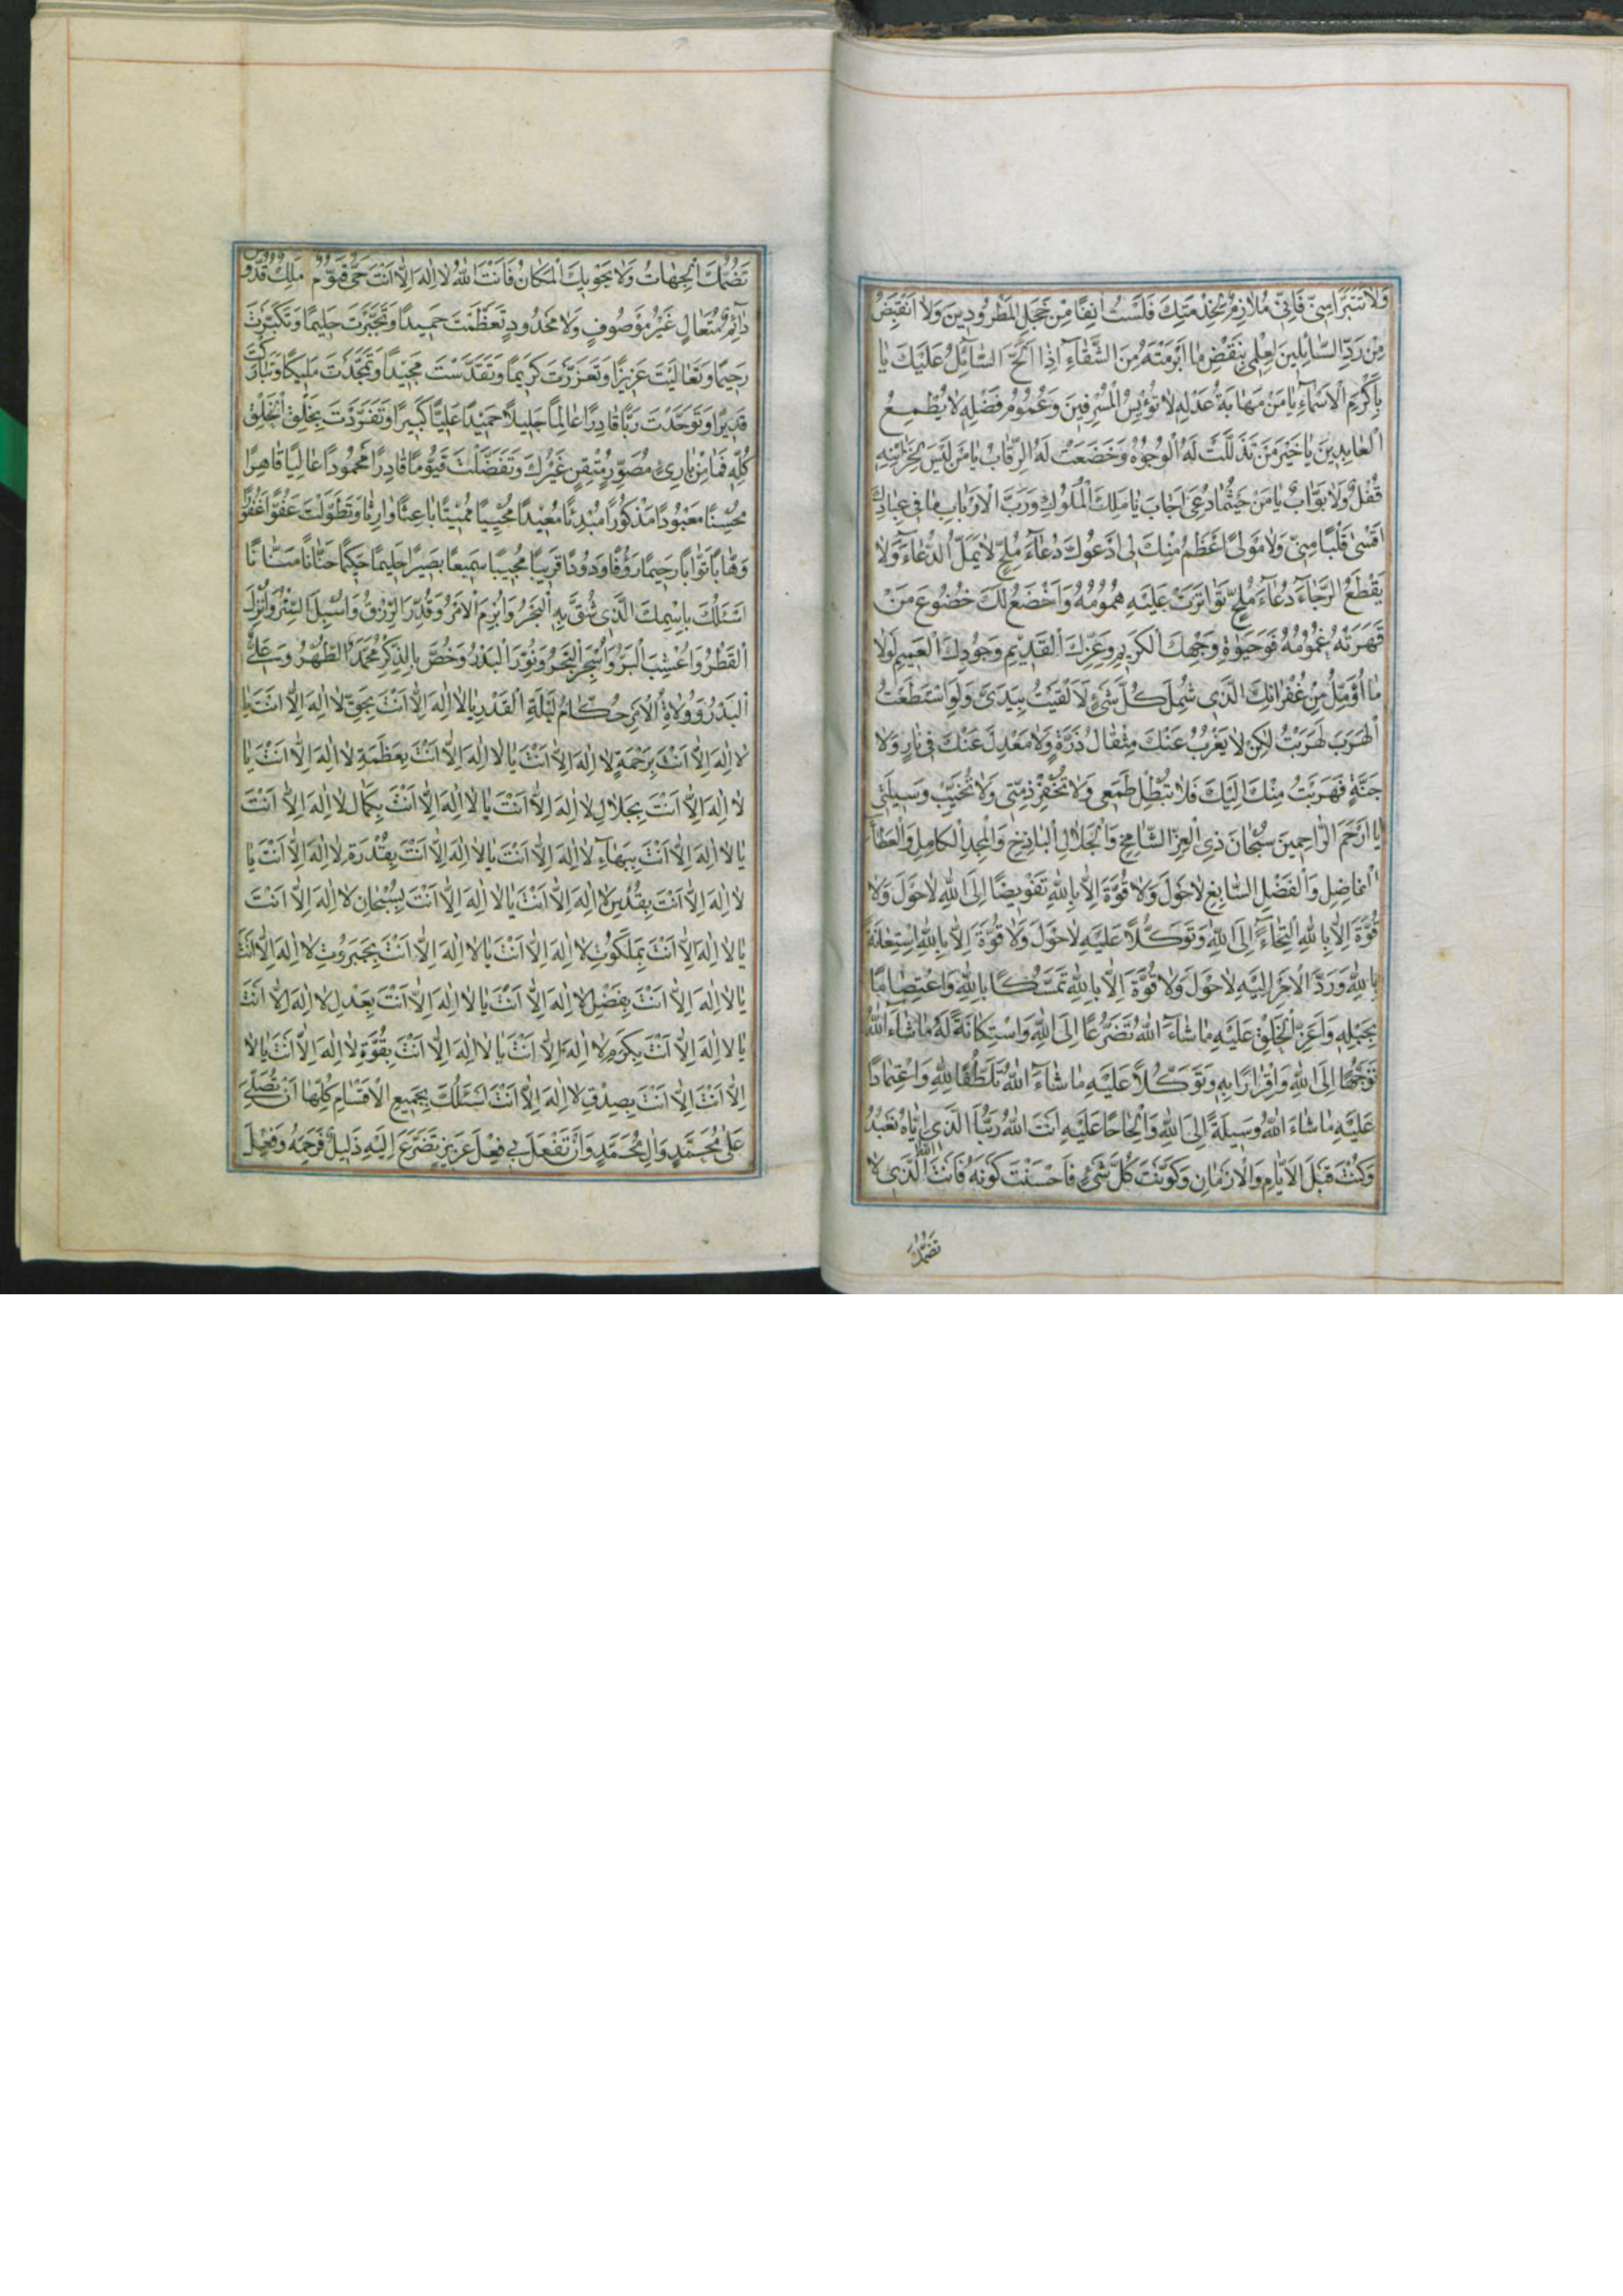 وَلَا تَتَبَرَّأْ مِنّی فَاِنّی مُلَازِمٌ لِخِدْمَتِكَ فَلَسْتُ اٰنِفًا مِنْ خَجَلِ الْمَطْرُودِینَ وَلَا اَنْقَبِضُ
مِنْ رَدِّ السَّائِلِینَ لِعِلْمی بِنَقْضِ مَا اَبْرَمْتَهُ مِنَ الشَّقَاءِ اِذَا اَلَحَّ السَّائِلُ عَلَیْكَ یَا
بِاَكْرَمِ الْاَسْمَاءِ یَا مَنْ مَهَابَةُ عَدْلِهِ لَا تُؤْیِسُ الْمُسْرِفِینَ وَعُمُومُ فَضْلِهِ لَا یُطْمِعُ
الْعَابِدِینَ یَا خَیْرَ مَنْ تَذَلَّلَتْ لَهُ الْوُجُوهُ وَخَضَعَتْ لَهُ الرِّقَابُ یَا مَنْ لَیْسَ لِخَزَائِنِهِ
قُفْلٌ وَلَا بَوَّابٌ یَا مَنْ حَیْثُمَا دُعِیَ اَجَابَ یَا مَلِكَ الْمُلُوكِ وَرَبَّ الْاَرْبَابِ مَا فی عِبَادِكَ
اَقْسٰی قَلْبًا مِنّی وَلَا مَوْلیً اَعْظَمُ مِنْكَ لی اَدْعُوكَ دُعَاءَ مُلِحٍّ لَا یَمَلُّ الدُّعَاءَ وَلَا
یَقْطَعُ الرَّجَاءَ دُعَاءَ مُلِحٍّ تَوَاتَرَتْ عَلَیْهِ هُمُومُهُ وَاَخْضَعُ لَكَ خُضُوعَ مَنْ
قَهَرَتْهُ غُمُومُهُ فَوَحَیٰوةِ وَجْهِكَ الْكَریمِ وَعِزِّكَ الْقَدیمِ وَجُودِكَ الْعَمیمِ لَوْلَا
مَا اُؤَمِّلُ مِنْ غُفْرَانِكَ الَّذی شَمِلَ كُلَّ شَیْءٍ لَاَلْقَیْتُ بِیَدَیَّ وَلَوِ اسْتَطَعْتُ
الْهَرَبَ لَهَرَبْتُ لٰكِنْ لَا یَعْزُبُ عَنْكَ مِثْقَالُ ذَرَّةٍ وَلَا مَعْدِلَ عَنْكَ فی نَارٍ وَلَا
جَنَّةٍ فَهَرَبْتُ مِنْكَ اِلَیْكَ فَلَا تُبْطِلْ طَمَعی وَلَا تُخْفِرْ ذِمَّتی وَلَا تُخَیِّبْ وَسیلَتی
یَا اَرْحَمَ الرَّاحِمینَ سُبْحَانَ ذِی الْعِزِّ الشَّامِخِ وَالْجَلَالِ الْبَاذِخِ وَالْمَجْدِ الْكَامِلِ وَالْعَطَاءِ
الْفَاضِلِ وَالْفَضْلِ السَّابِغِ لَا حَوْلَ وَلَا قُوَّةَ اِلَّا بِاللهِ تَفْویضًا اِلَی اللهِ لَا حَوْلَ وَلَا
قُوَّةَ اِلَّا بِاللهِ الْتِجَاءً اِلَی اللهِ وَتَوَكُّلًا عَلَیْهِ لَا حَوْلَ وَلَا قُوَّةَ اِلَّا بِاللهِ اسْتِعَانَةً
بِاللهِ وَرَدَّ الْاَمْرِ اِلَیْهِ لَا حَوْلَ وَلَا قُوَّةَ اِلَّا بِاللهِ تَمَسُّكًا بِاللهِ وَاعْتِصَامًا
بِحَبْلِهِ وَاَعَزِّ الْخَلْقِ عَلَیْهِ مَا شَاءَ اللهُ تَضَرُّعًا اِلَی اللهِ وَاسْتِكَانَةً لَهُ مَا شَاءَ اللهُ
تَوَجُّهًا اِلَی اللهِ وَاِقْرَارًا بِهِ وَتَوَكُّلًا عَلَیْهِ مَا شَاءَ اللهُ تَلَطُّفًا لِلهِ وَاعْتِمَادًا
عَلَیْهِ مَا شَاءَ اللهُ وَسیلَةً اِلَی اللهِ وَاِلْحَاحًا عَلَیْهِ اَنْتَ اللهُ رَبُّنَا الَّذی اِیَّاهُ نَعْبُدُ
وَكُنْتَ قَبْلَ الْاَیَّامِ وَالْاَزْمَانِ وَكَوَّنْتَ كُلَّ شَیْءٍ فَاَحْسَنْتَ كَوْنَهُ فَاَنْتَ اللهُ الَّذی لَا
تَضُمُّكَ
تَضُمُّكَ الْجِهَاتُ وَلَا یَحْویكَ الْمَكَانُ فَاَنْتَ اللهُ لَا اِلٰهَ اِلَّا اَنْتَ حَیٌّ قَیُّومٌ مَلِكٌ قُدُّوسٌ
دَائِمٌ مُتَعَالٍ غَیْرُ مَوْصُوفٍ وَلَا مَحْدُودٍ تَعَظَّمْتَ حَمیدًا وَتَجَبَّرْتَ حَلیمًا وَتَكَبَّرْتَ
رَحیمًا وَتَعَالَیْتَ عَزیزًا وَتَعَزَّزْتَ كَریمًا وَتَقَدَّسْتَ مَجیدًا وَتَمَجَّدْتَ مَلیكًا وَتَبَارَكْتَ
قَدیرًا وَتَوَحَّدْتَ رَبًّا قَادِرًا عَالِمًا جَلیلًا حَمیدًا عَلِیًّا كَبیرًا وَتَفَرَّدْتَ بِخَلْقِ الْخَلْقِ
كُلِّهِ فَمَا مِنْ بَارِئٍ مُصَوِّرٍ مُتْقِنٍ غَیْرُكَ وَتَفَضَّلْتَ قَیُّومًا قَادِرًا مَحْمُودًا عَالِیًا قَاهِرًا
مُحْسِنًا مَعْبُودًا مَذْكُورًا مُبْدِئًا مُعیدًا مُحْیِیًا مُمیتًا بَاعِثًا وَارِثًا وَتَطَوَّلْتَ عَفُوًّا غَفُورًا
وَهَّابًا تَوَّابًا رَحیمًا رَؤُفًا وَدُودًا قَریبًا مُجیبًا سَمیعًا بَصیرًا حَلیمًا حَكیمًا حَنَّانًا مَنَّانًا
اَسْئَلُكَ بِاسْمِكَ الَّذی شُقَّ بِهِ الْبَحْرُ وَاُبْرِمَ الْاَمْرُ وَقُدِّرَ الرِّزْقُ وَاُسْبِلَ السِّتْرُ وَاُنْزِلَ
الْقَطْرُ وَاُعْشِبَ الْبَرُّ وَاُسْجِرَ الْبَحْرُ وَنُوِّرَ الْبَدْرُ وَخُصَّ بِالذِّكْرِ مُحَمَّدٌ الطُّهْرُ وَ عَلِیٌّ
الْبَدْرُ وَوُلَاةُ الْاَمْرِ حُكَّامُ لَیْلَةِ الْقَدْرِ یَا لَا اِلٰهَ اِلَّا اَنْتَ بِحَقِّ لَا اِلٰهَ اِلَّا اَنْتَ یَا
لَا اِلٰهَ اِلَّا اَنْتَ بِرَحْمَةِ لَا اِلٰهَ اِلَّا اَنْتَ یَا لَا اِلٰهَ اِلَّا اَنْتَ بِعَظَمَةِ لَا اِلٰهَ اِلَّا اَنْتَ یَا
لَا اِلٰهَ اِلَّا اَنْتَ بِجَلَالِ لَا اِلٰهَ اِلَّا اَنْتَ یَا لَا اِلٰهَ اِلَّا اَنْتَ بِكَمَالِ لَا اِلٰهَ اِلَّا اَنْتَ
یَا لَا اِلٰهَ اِلَّا اَنْتَ بِبَهَاءِ لَا اِلٰهَ اِلَّا اَنْتَ یَا لَا اِلٰهَ اِلَّا اَنْتَ بِقُدْرَةِ لَا اِلٰهَ اِلَّا اَنْتَ یَا
لَا اِلٰهَ اِلَّا اَنْتَ بِقُدْسِ لَا اِلٰهَ اِلَّا اَنْتَ یَا لَا اِلٰهَ اِلَّا اَنْتَ بِسُبْحَانِ لَا اِلٰهَ اِلَّا اَنْتَ
یَا لَا اِلٰهَ اِلَّا اَنْتَ بِمَلَكُوتِ لَا اِلٰهَ اِلَّا اَنْتَ یَا لَا اِلٰهَ اِلَّا اَنْتَ بِجَبَرُوتِ لَا اِلٰهَ اِلَّا اَنْتَ
یَا لَا اِلٰهَ اِلَّا اَنْتَ بِفَضْلِ لَا اِلٰهَ اِلَّا اَنْتَ یَا لَا اِلٰهَ اِلَّا اَنْتَ بِعَدْلِ لَا اِلٰهَ اِلَّا اَنْتَ
یَا لَا اِلٰهَ اِلَّا اَنْتَ بِكَرَمِ لَا اِلٰهَ اِلَّا اَنْتَ یَا لَا اِلٰهَ اِلَّا اَنْتَ بِقُوَّةِ لَا اِلٰهَ اِلَّا اَنْتَ یَا لَا
اِلَّا اَنْتَ اِلَّا اَنْتَ بِصِدْقِ لَا اِلٰهَ اِلَّا اَنْتَ اَسْئَلُكَ بِجَمیعِ الْاَقْسَامِ كُلِّهَا اَنْ تُصَلِّیَ
عَلٰی مُحَمَّدٍ وَاٰلِ مُحَمَّدٍ وَاَنْ تَفْعَلَ بی فِعْلَ عَزیزٍ تَضَرَّعَ اِلَیْهِ ذَلیلٌ فَرَحِمَهُ وَفِعْلَ